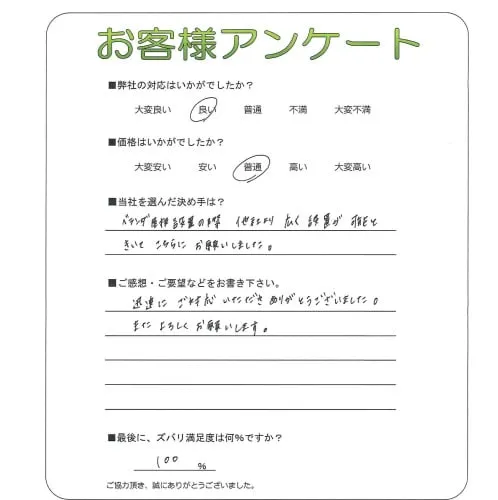 お客様アンケート
■弊社の対応はいかがでしたか？
大変良い 良い 普通 不満 大変不満
■価格はいかがでしたか？
大変安い 安い 普通 高い 大変高い
■当社を選んだ決め手は？
ベランダ屋根設置の際 他社より広く設置が可能と
きいてこちらにお願いしました。
■ご感想・ご要望などをお書き下さい。
迅速にご対応いただきありがとうございました。
またよろしくお願いします。
■最後に、ズバリ満足度は何％ですか？
100 ％
ご協力頂き、誠にありがとうございました。